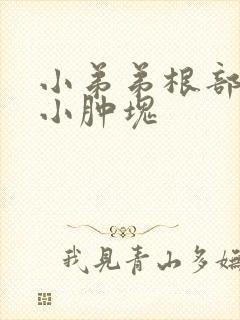 小弟弟根部
小肿块
我見青山多嫵